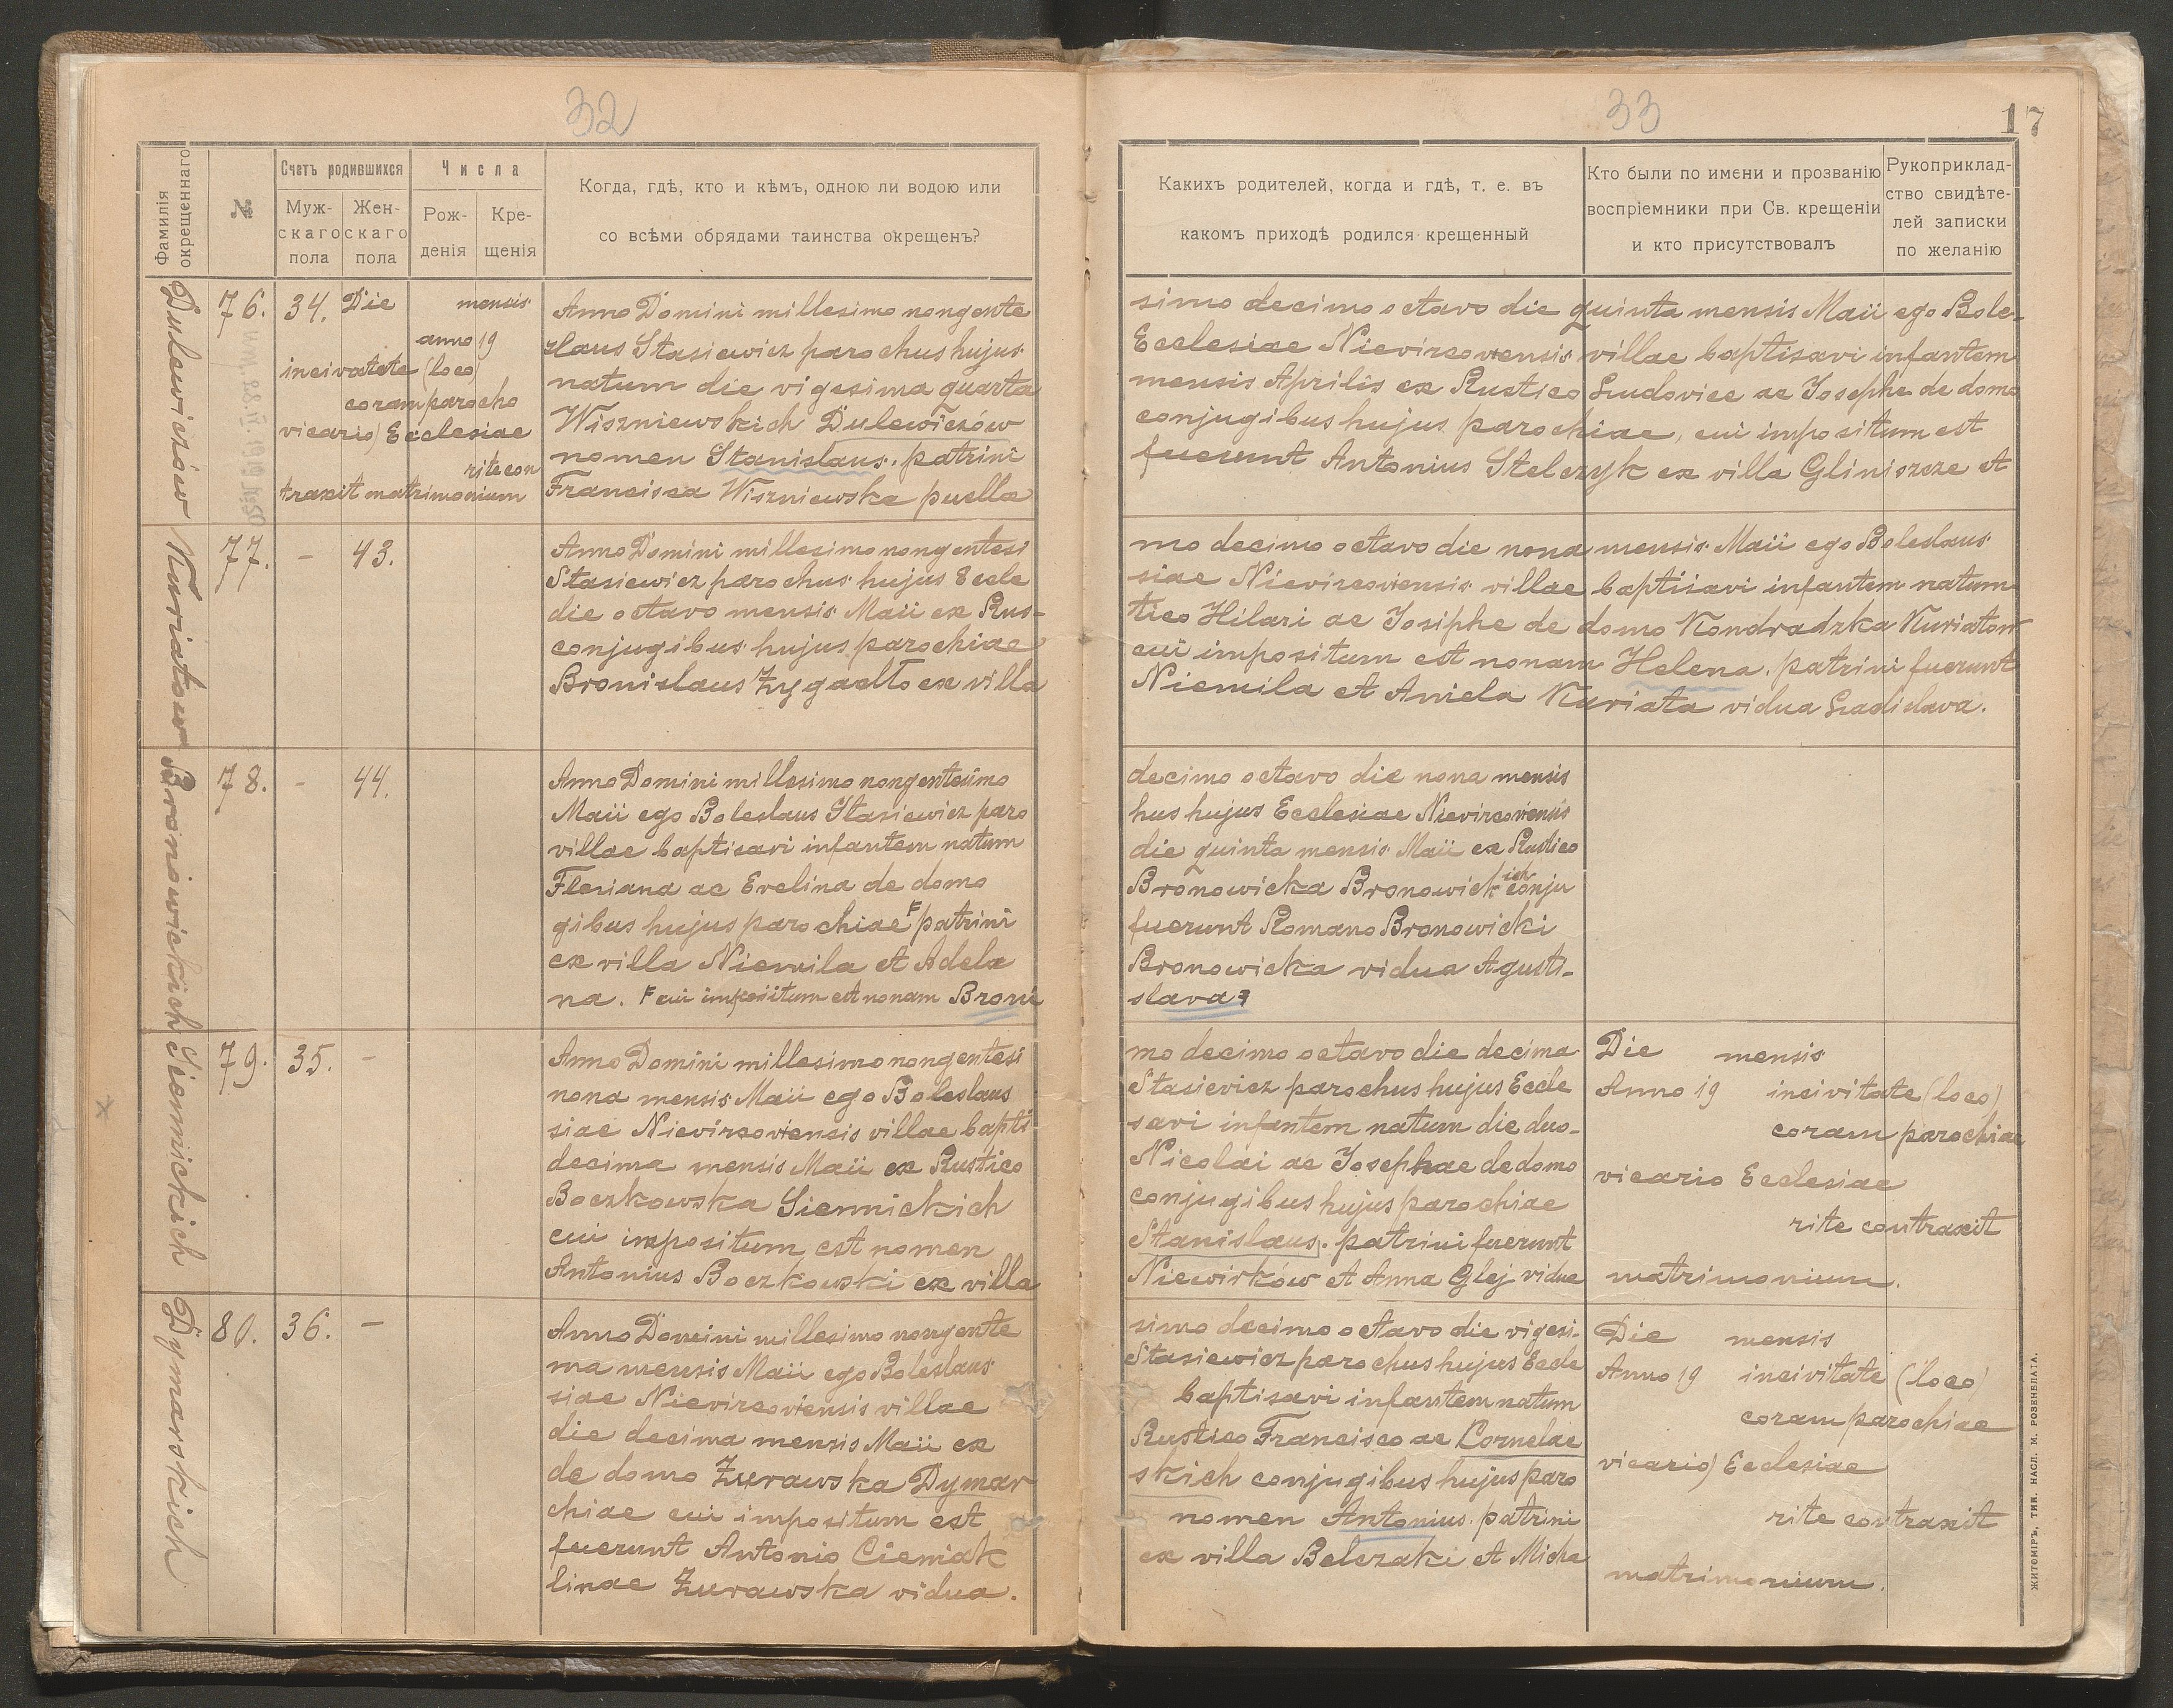 32
Фамилія
окрещеннаго
№
Счетъ родившихся
Муж-
скаго
пола
Жен-
скаго
пола
Числа
Рож-
денія
Кре-
щенія
Когда, гдѣ, кто и кѣмъ, одною ли водою или
со всѣми обрядами таинства окрещенъ?
Dulewiczów
76.
34.
Die mensis
anno 19
in civitate (loco)
coram parocho
vicario) Ecclesiae
rite con
traxit matrimonium
Anno Domini millesimo nongente
slaus Stasiewicz parochus hujus
natum die vigesima quarta
Wiszniewskich Dulewiczów
nomen Stanislaus. patrini
Francisca Wiszniewska puella
Kuriatow
77.
-
43.
Anno Domini millesimo nongentesi
Stasiewicz parochus hujus Eccle
die octavo mensis Maii ex Rus-
conjugibus hujus parochiae
Bronislaus Zygadło ex villa
Bronowickich
78.
-
44.
Anno Domini millesimo nongentesimo
Maii ego Boleslaus Stasiewicz paro
villae baptisavi infantem natum
Floriana ac Evelina de domo
gibus hujus parochiae F patrini
ex villa Niemila et Adela
na. F cui impositum est nonam Broni
Siennickich
79.
35.
-
Anno Domini millesimo nongentesi
nona mensis Maii ego Boleslaus
siae Nievircoviensis villae bapti
decima mensis Maii ex Rustico
Boczkowska Siennickich
cui impositum est nomen
Antonius Boczkowski ex villa
Dymarskich
80.
36.
-
Anno Domini millesimo nongente
ma mensis Maii ego Boleslaus
siae Nievircoviensis villae
die decima mensis Maii ex
de domo Żurawska Dymar
chiae cui impositum est
fuerunt Antonio Cieniak
linae Żurawska vidua.
33
17
Какихъ родителей, когда и гдѣ, т. е. въ
какомъ приходѣ родился крещенный
Кто были по имени и прозванію
воспріемники при Св. крещеніи
и кто присутствовалъ
Рукоприклад-
ство свидѣте-
лей записки
по желанію
simo decimo octavo die quinta mensis Maii ego Bole-
Ecclesiae Nievircoviensis villae baptisavi infantem
mensis Aprilis ex Rustico Ludovice ac Josephe de domo
conjugibus hujus parochiae, cui impositum est
fuerunt Antonius Stelczyk ex villa Gliniszcze et
mo decimo octavo die nona mensis Maii ego Boleslaus
siae Nievircoviensis villae baptisavi infantem natum
tico Hilari ac Josiphe de domo Kondradzka Kuriatow
cui impositum est nonam Helena. patrini fuerunt
Niemila et Aniela Kuriata vidua Ladislava.
decimo octavo die nona mensis
hus hujus Ecclesiae Nievircoviensis
die quinta mensis Maii ex Rustico
Bronowicka Bronowickich conju
fuerunt Romano Bronowicki
Bronowicka vidua Agusti-
slava F
mo decimo octavo die decima
Stasievicz parochus hujus Eccle
savi infantem natum die duo-
Nicolai ac Josephae de domo
conjugibus hujus parochiae
Stanislaus. patrini fuerunt
Niewirków et Anna Glej vidua
Die mensis
Anno 19 in civitate (loco)
coram parochiae
vicario Ecclesiae
rite contraxit
matrimonium.
simo decimo octavo die vigesi-
Stasiewicz parochus hujus Eccle
baptisavi infantem natum
Rustico Francisco ac Cornelae
skich conjugibus hujus paro
nomen Antonius. patrini
ex villa Belczaki et Micha
Die mensis
Anno 19 in civitate (loco)
coram parochiae
vicario) Ecclesiae
rite contraxit
matrimonium.
ЖИТОМІРЪ, ТИП. НАСЛ. М. РОЗЕНБЛАТА.